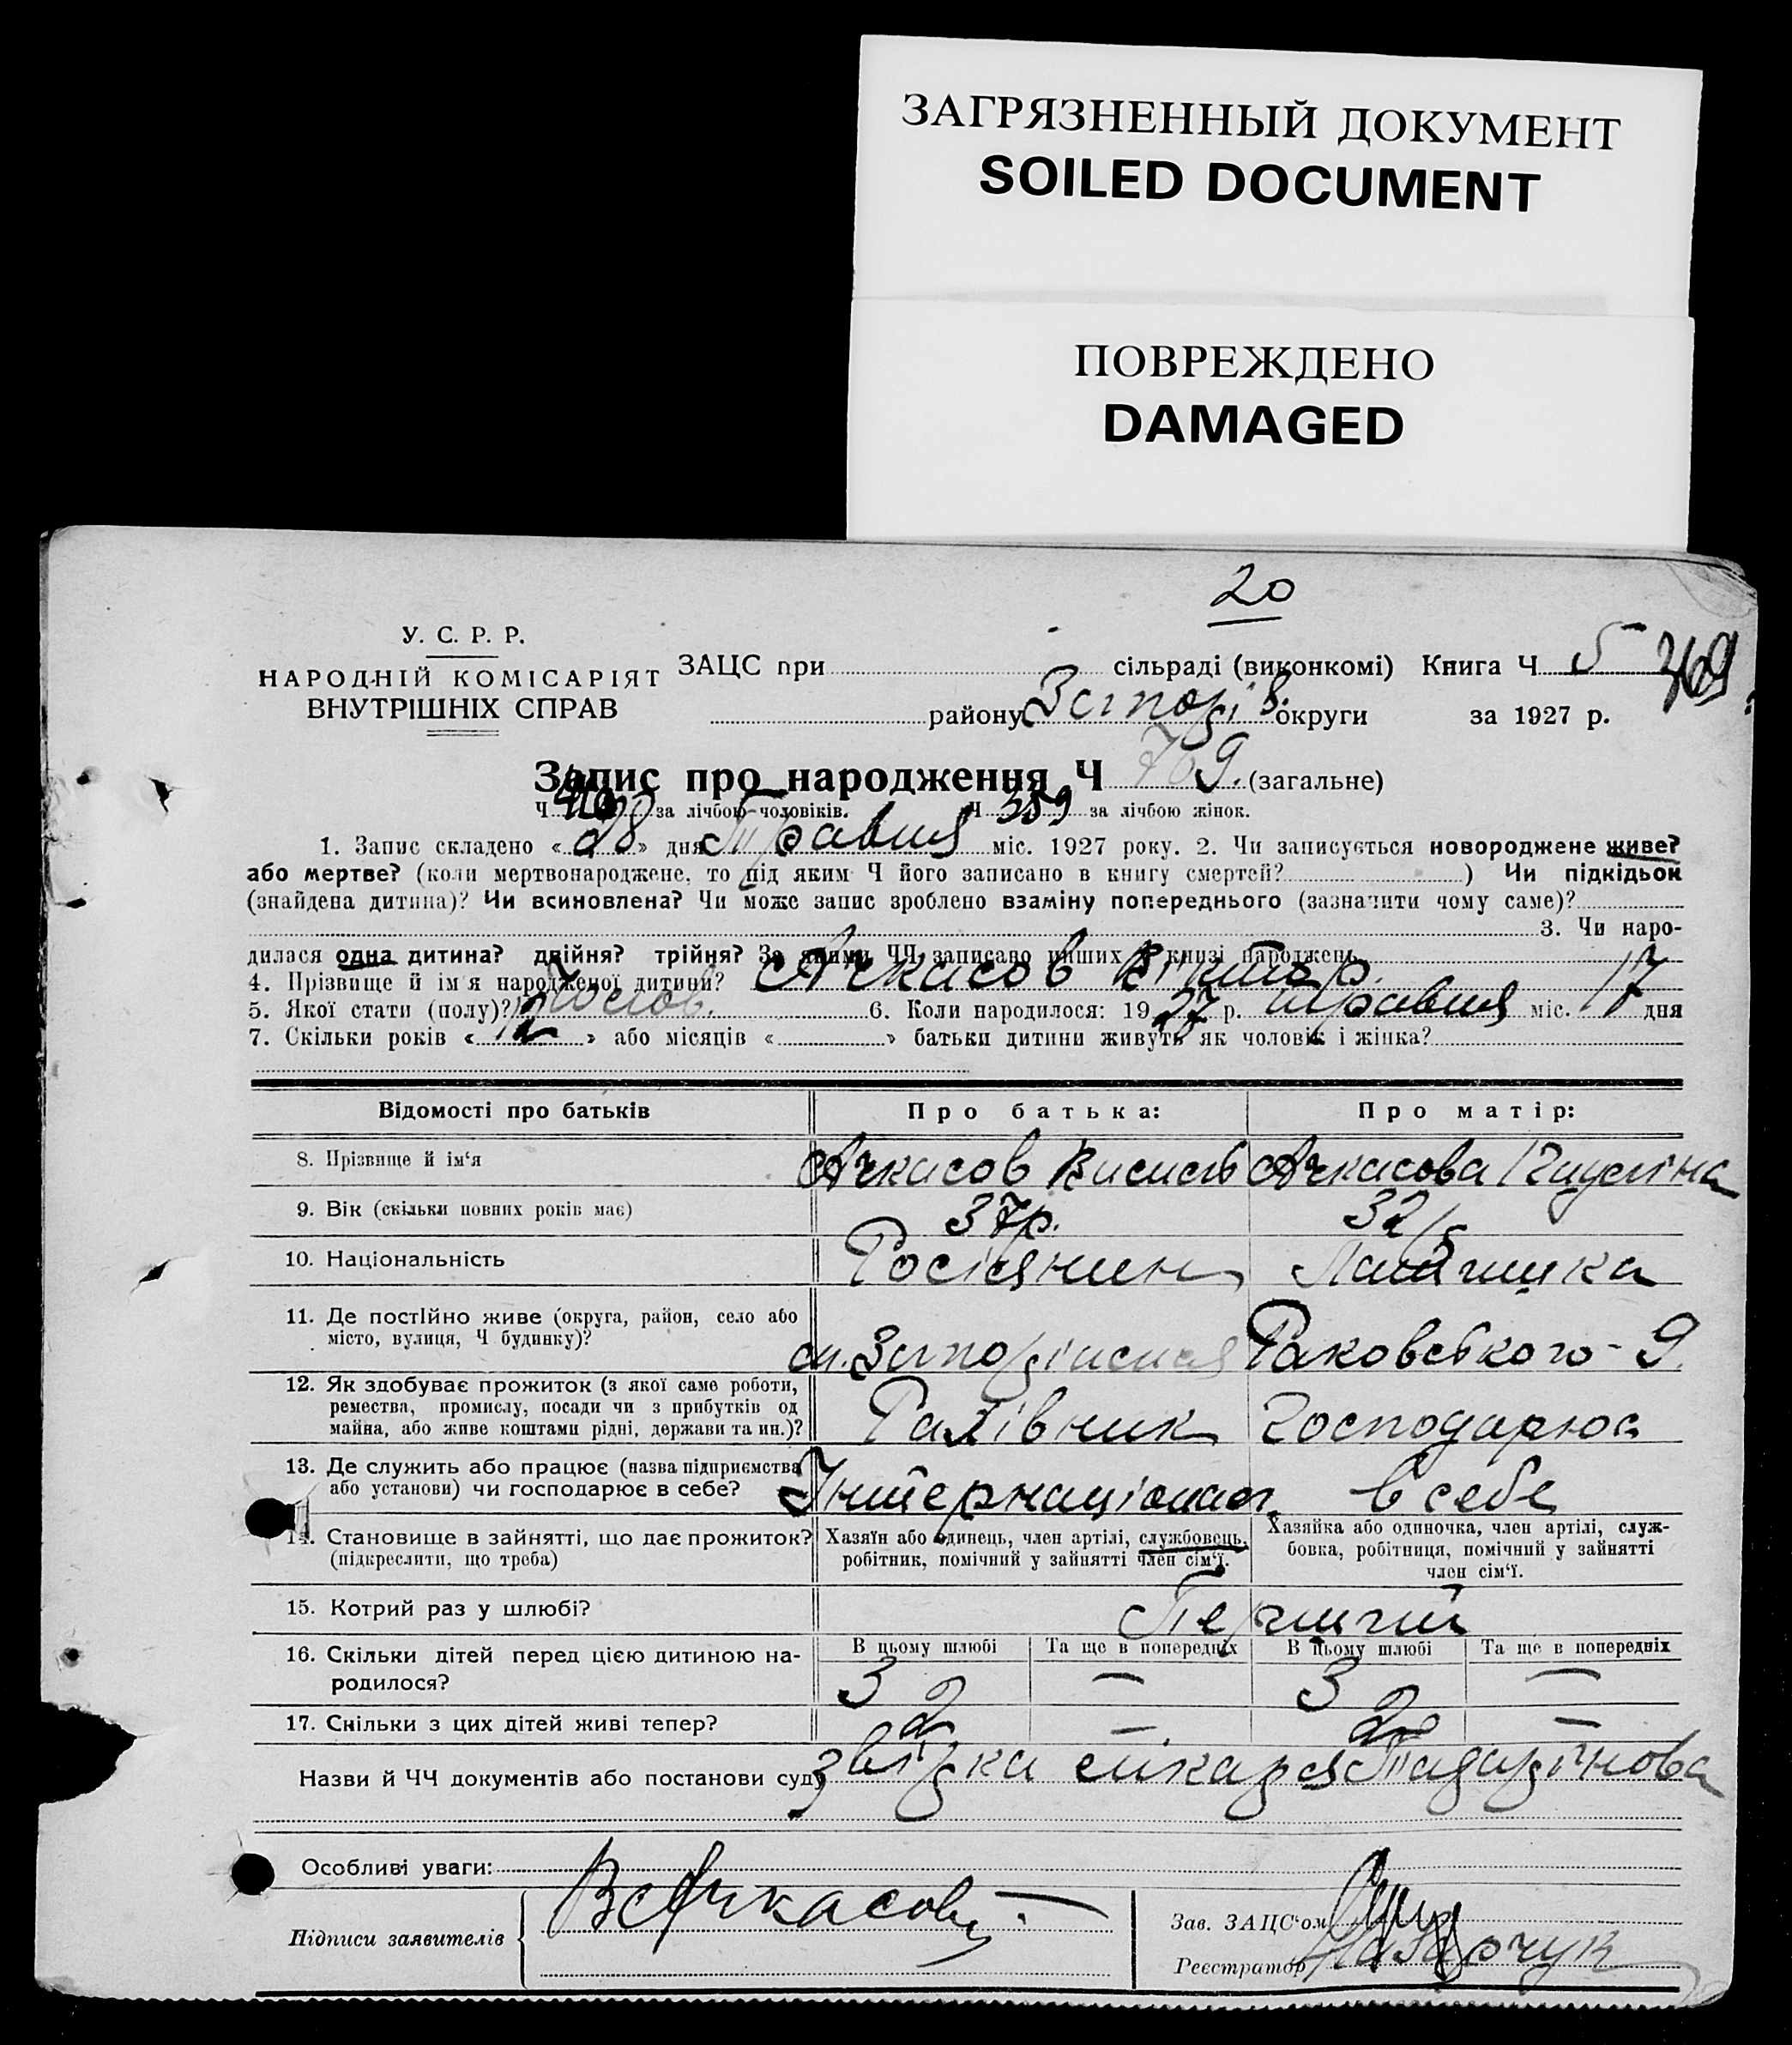 ЗАГРЯЗНЕННЫЙ ДОКУМЕНТ
SOILED DOCUMENT
ПОВРЕЖДЕНО
DAMAGED
20
У. С. Р. Р.
НАРОДНІЙ КОМІСАРІЯТ
ВНУТРІШНІХ СПРАВ
ЗАЦС при сільраді (виконкомі) Книга Ч 5 369
району Запоріз. округи за 1927 р.
Запис про народження Ч 769. (загальне)
Ч 410 за лічбою чоловіків. Ч 359 за лічбою жінок.
1. Запис складено « 28 » дня Травня міс. 1927 року. 2. Чи записується новороджене живе?
або мертве? (коли мертвонароджене, то під яким Ч його записано в книгу смертей? ) Чи підкідьок
(знайдена дитина)? Чи всиновлена? Чи може запис зроблено взаміну попереднього (зазначити чому саме)?
3. Чи наро-
дилася одна дитина? двійня? трійня? За якими ЧЧ записано инших в книзі народжень
4. Прізвище й ім'я народженої дитини? Ачкасов Віктор.
5. Якої стати (полу)? Чолов. 6. Коли народилося: 1927 р. травня міс. 17 дня
7. Скільки років « 12 » або місяців « » батьки дитини живуть як чоловік і жінка?
Відомості про батьків Про батька: Про матір:
8. Прізвище й ім'я Ачкасов Ачкасова
9. Вік (скільки повних років має) 37р. 32р
10. Національність Росіянин
11. Де постійно живе (округа, район, село або
місто, вулиця, Ч будинку)? Раковського - 9.
12. Як здобуває прожиток (з якої саме роботи,
ремества, промислу, посади чи з прибутків од
майна, або живе коштами рідні, держави та ин.)? Рахівник Господарює
13. Де служить або працює (назва підприємства
або установи) чи господарює в себе? Інтернаціонал в себе
14. Становище в зайнятті, що дає прожиток?
(підкреслити, що треба)
Хазяїн або одинець, член артілі, службовець,
робітник, помічний у зайнятті член сім'ї.
Хазяйка або одиночка, член артілі, служ-
бовка, робітниця, помічний у зайнятті
член сім'ї.
15. Котрий раз у шлюбі? Перший
16. Скільки дітей перед цією дитиною на-
родилося?
В цьому шлюбі Та ще в попередніх В цьому шлюбі Та ще в попередніх
3 — 3 —
17. Скільки з цих дітей живі тепер? 2 — 2 —
Назви й ЧЧ документів або постанови суду лікаря
Особливі уваги:
Підписи заявителів В Ачкасов
Зав. ЗАЦС'ом
Реєстратор